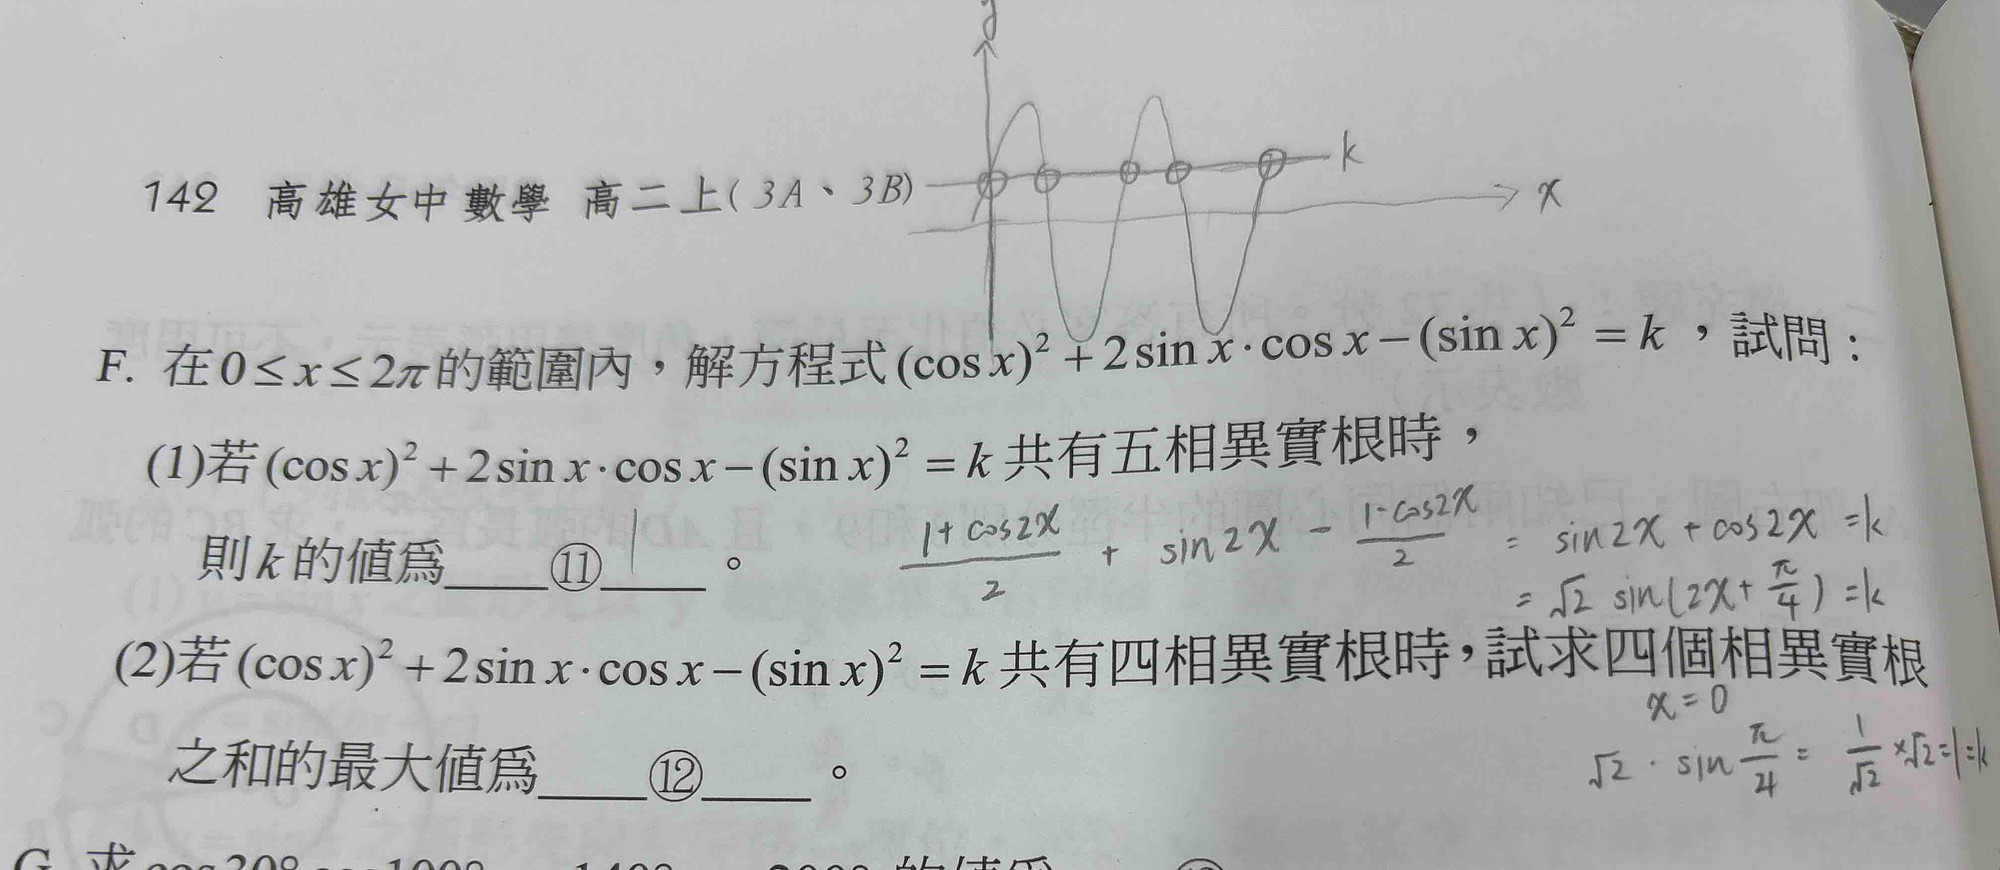 y
k
x
142 高雄女中 數學 高二上(3A、3B)
F. 在0≤x≤2π的範圍內，解方程式(cos x)²+2sin x·cos x−(sin x)²=k，試問：
(1)若(cos x)²+2sin x·cos x−(sin x)²=k共有五相異實根時，
則k的值為____⑪ 1____。
(1+cos2x)/2 + sin2x − (1-cos2x)/2 = sin2x + cos2x = k
= √2 sin(2x+π/4) = k
(2)若(cos x)²+2sin x·cos x−(sin x)²=k共有四相異實根時，試求四個相異實根
x=0
√2 · sin π/4 = 1/√2 ×√2=1=k
之和的最大值為____⑫____。
G. 求
的值為